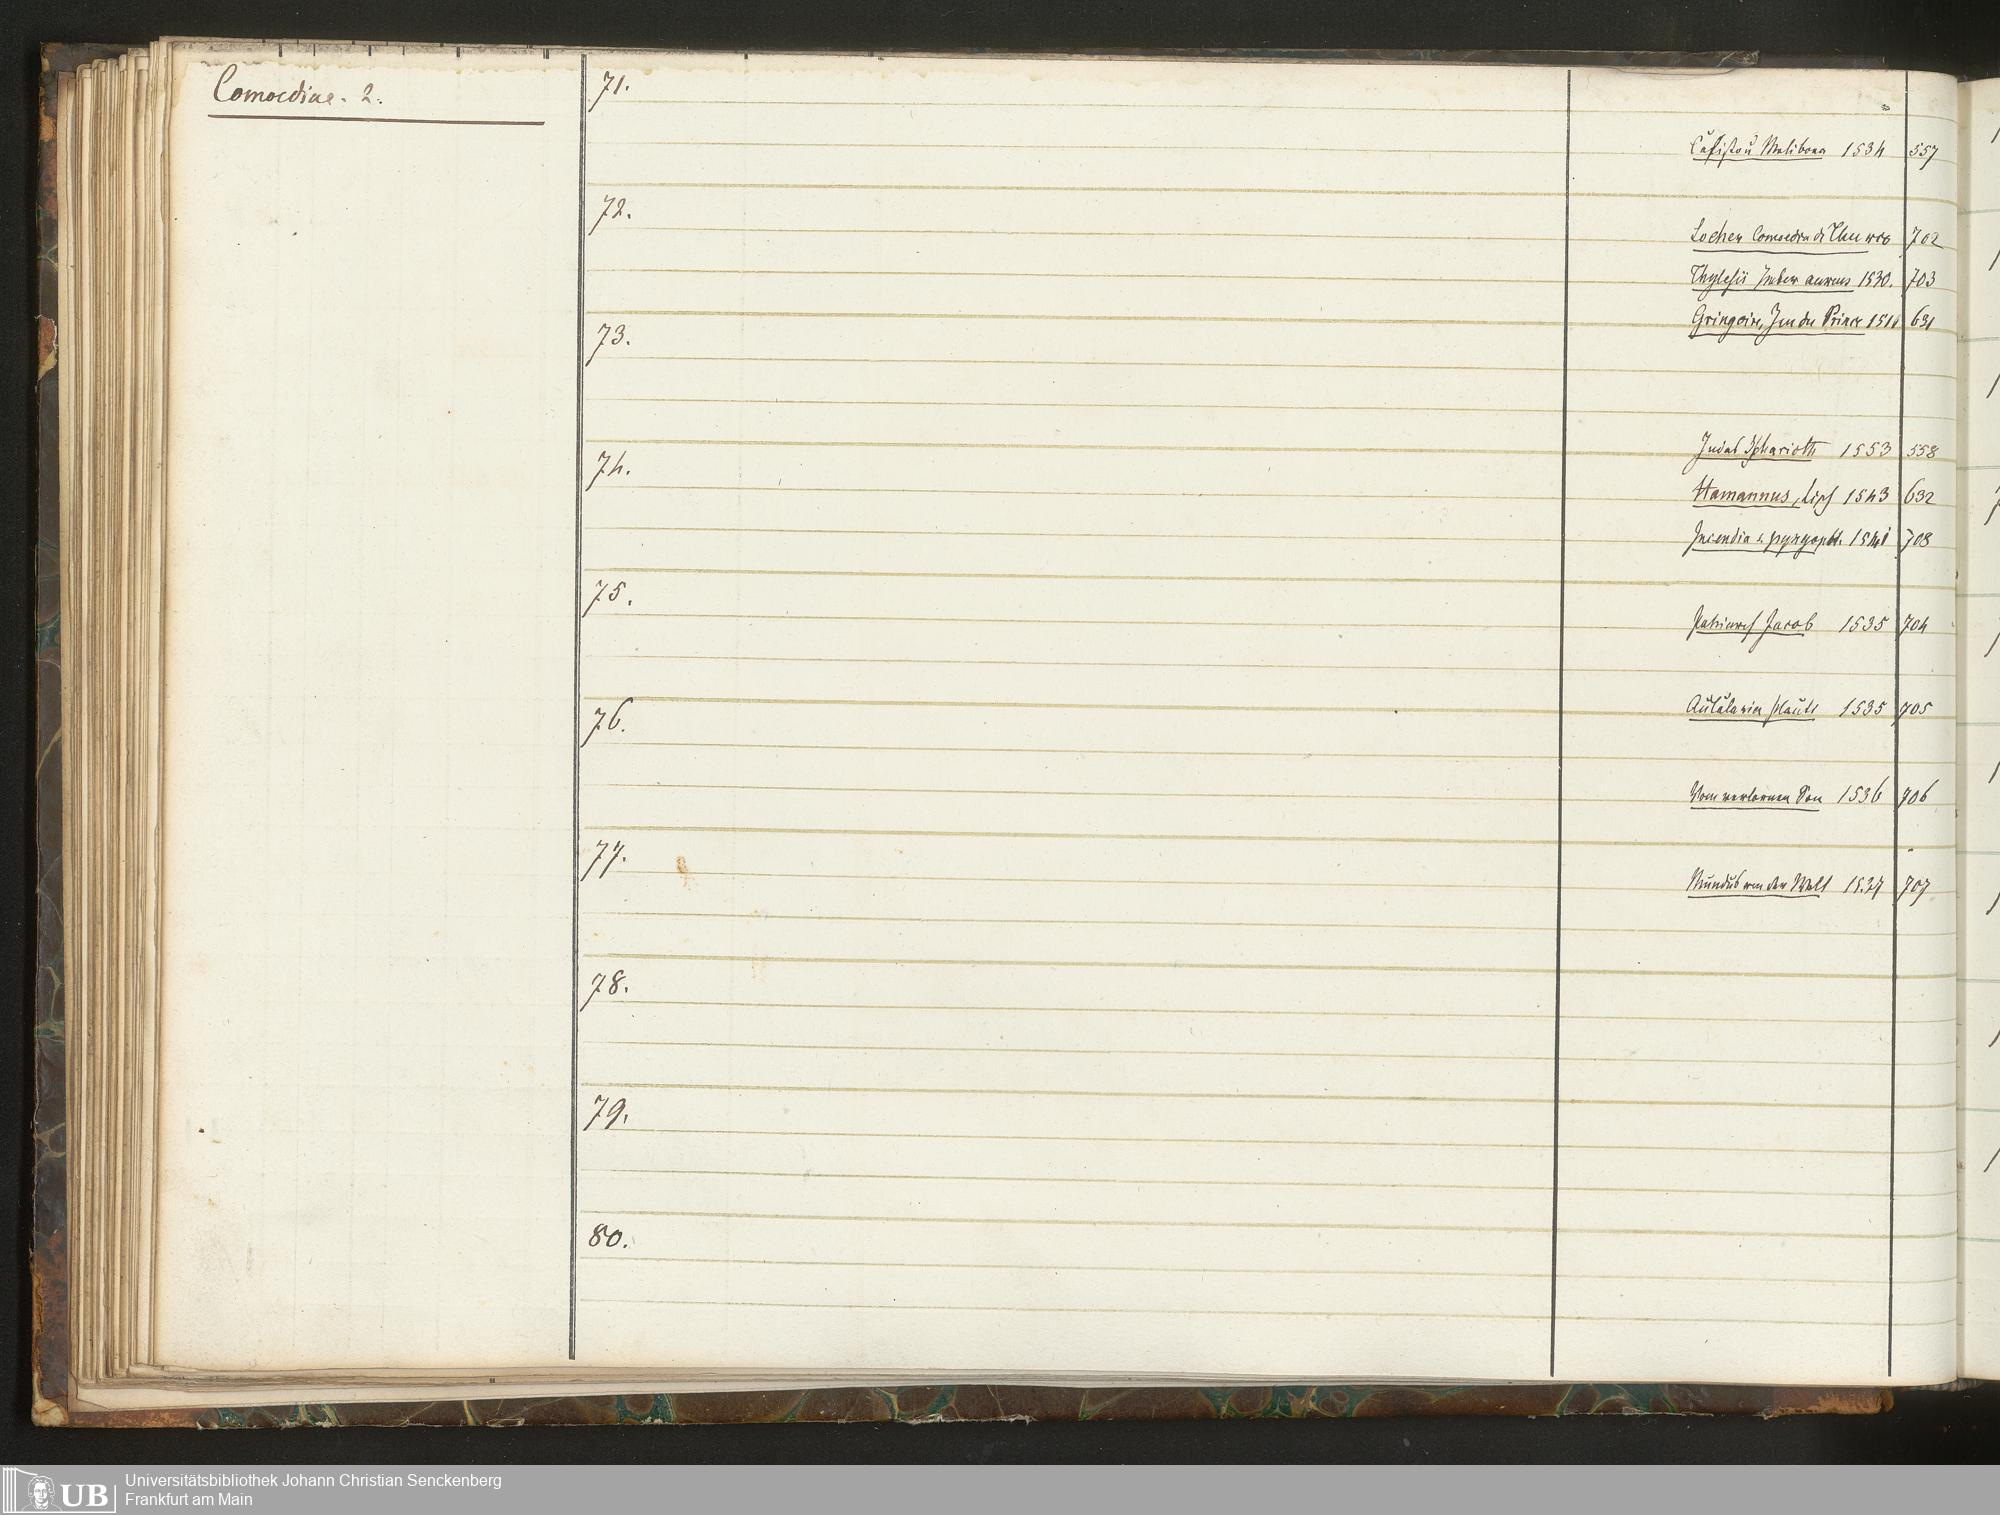 Comoediae. 2.
71.
Calistus Meliboea 1534 557
72.
Locher Comoedia de 702
Thylesii Imber aureus 1530. 703
Gringoire, Jeu du Prince 1511 631
73.
Judas Iskarioth 1553 558
74.
Hamannus, 1543 632
Incendia s. pyrgopol. 1541 708
75.
Patriarch Jacob 1535 704
76.
Aulularia Plauti 1535 705
Vom verlornen Son 1536 706
77.
Mundus von der Welt 1537 707
78.
79.
80.
UB
Universitätsbibliothek Johann Christian Senckenberg
Frankfurt am Main